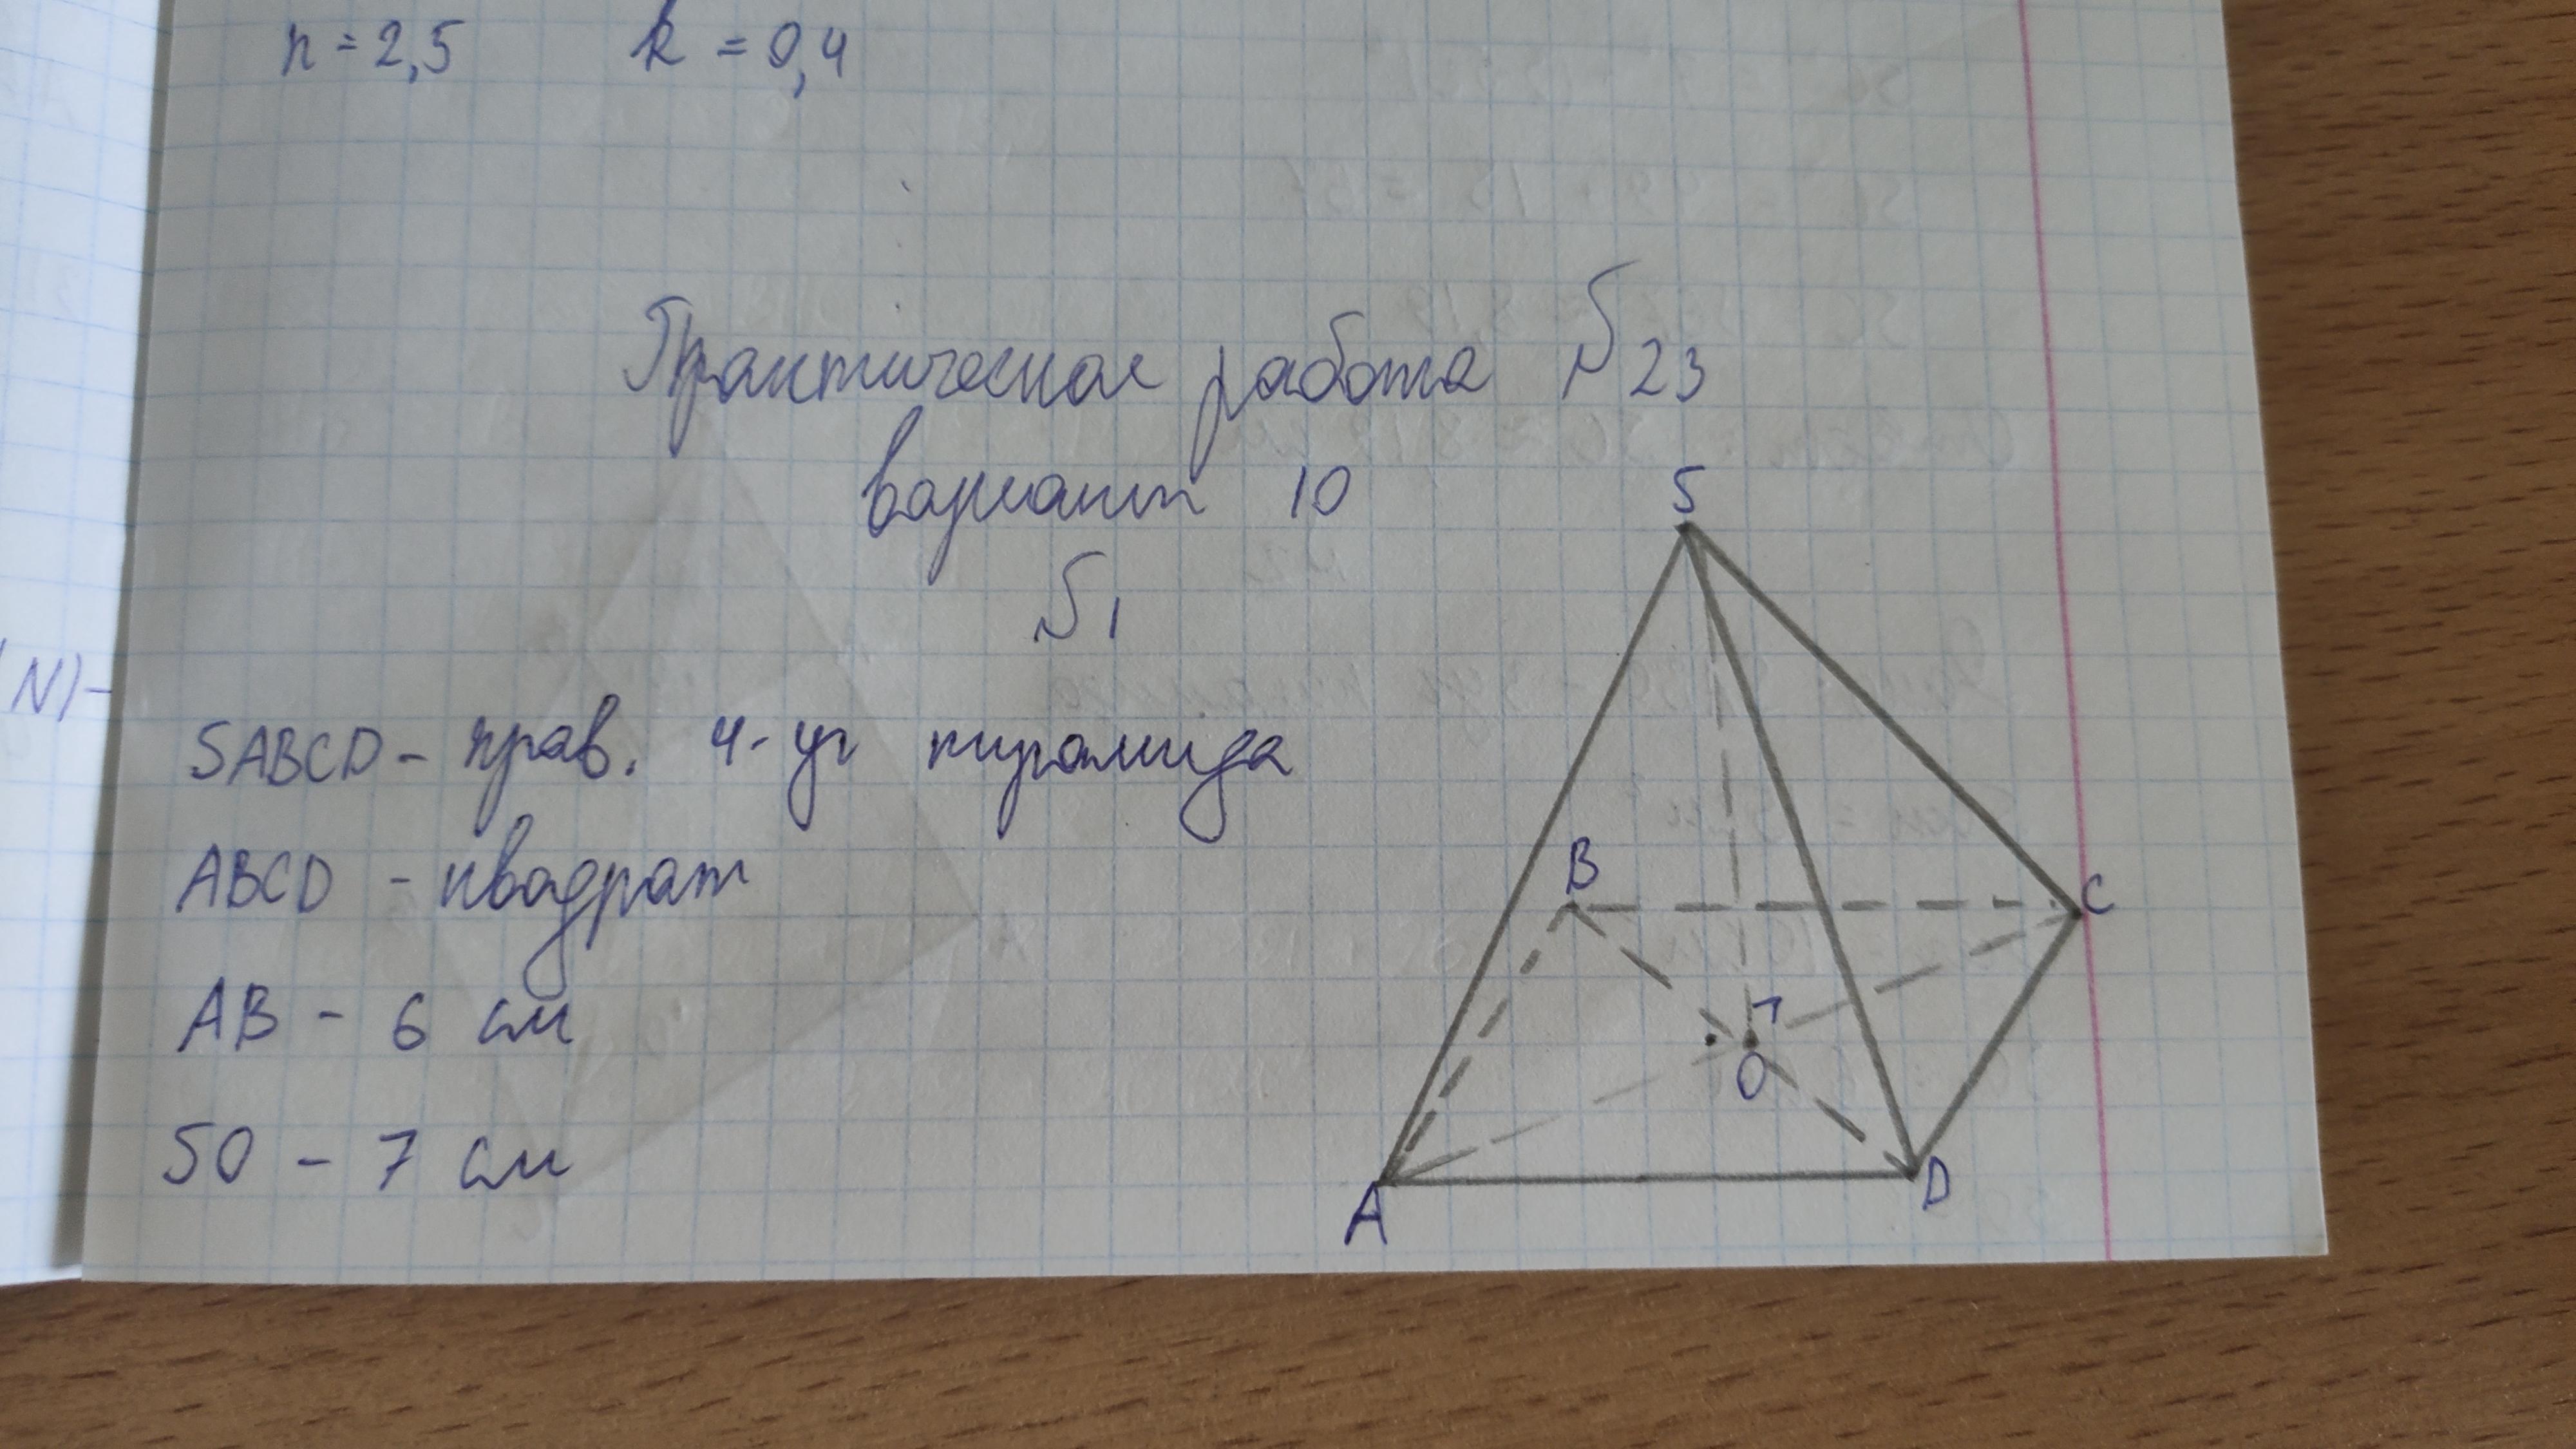 n = 2,5 k = 0,4
Практическая работа №23
вариант 10
№1
SABCD - прав. 4-уг пирамида
ABCD - квадрат
AB - 6 см
SO - 7 см
N) -
S
B
C
O
A
D